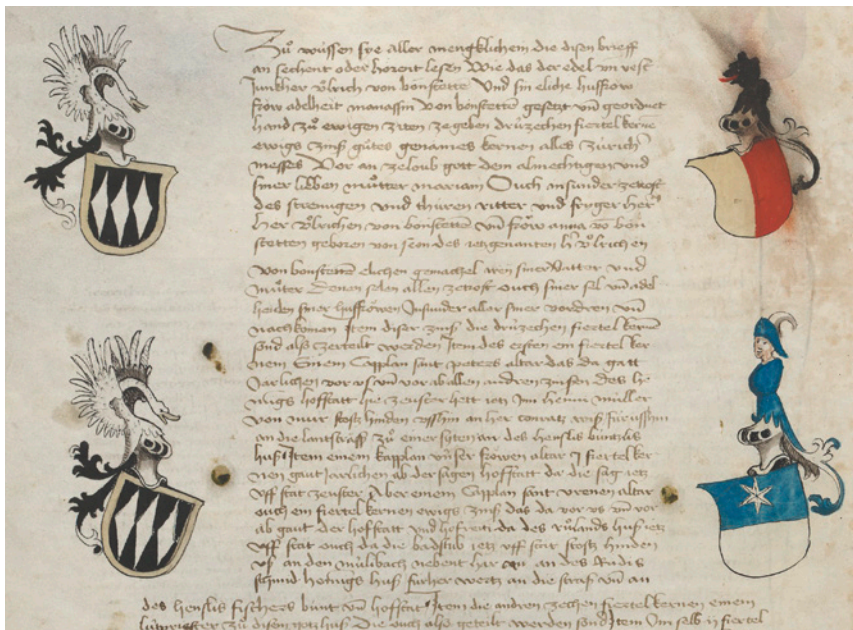 Zuͦ wüssen sye aller mengklichem die disen brieff
an sehent oder hörent lesen Wie das der edel vn̄ vest
Junkher vͦlrich von bonstette Und sin eliche husfrow
frow adelheit manassin von bonstetten gesetzt vnd geordnet
hand zuͦ ewigen ziten ze geben drüzechen fiertel kerne
ewigs zinß guͦtes genames kernen alles zürich
messes Vor an ze lob gott dem almechtigen vnd
siner lieben muͦtter mariam Ouch in sunder ze trost
des strengen vnd thüren ritter vnd fryger her
her vͦlrichen von bonstette vn̄ frow anna vō bon
stetten geboren von seon des jetzgenanten h̄ vͦlrichen
von bonstette elichen gemachel vatter vnd
muͦter Denen selen allen ze trost ouch siner sel vn̄ adel
heiden siner husfrowen Jnsunder aller siner vordren vn̄
nachkomen Jtem diser zinß die drüzechen fiertel kernē
sond also zerteilt werden Jtem des ersten ein fiertel ker
nem Einem Capplan sant peters altar das da gatt
Jarlichen vor vß vn̄ vor ab allen andren zinsen des he
nigs hofstatt hie ze vster hett jetz Jnn heini müller
von mur stost hinden an her conratz
an die lantstraß zuͦ einer syten an des henslis bünzlis
huß Jtem einem kapplan vnser frowen altar j fiertel ker
nen gaut Jarlichen ab der sagen hofstatt da die sag jetz
vff stat ze vster aber einem Capplan sant vrenen altar
ouch ein fiertel kernen ewigs zinß das da vor vs vn̄ vor
ab gaut der hofstatt vnd hofreiti da des ruͦlands huß jetz
vff stat ouch da die badstub jetz vff stat stost hinden
vff an den mülibach nebent har an des Ruͦdis
schmid huß fürher wertz an die straß vn̄ an
des henslis fischers bünt vn̄ hofstat Jtem die andren zechen fiertel kernen einem
lütpriester zuͦ disem gotzhuß Die ouch also geteilt werden sond Jtem Jm selb ij fiertel